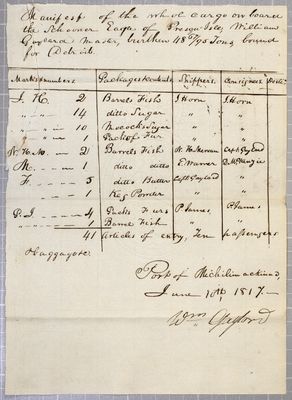 Manifest of the whole cargo on board
the Schooner Eagle of Presque Isle, William
Gaylord Master, burthen 48 7/95 Tons, bound
for Detroit.
Marks & numbers Packages & contents Shippers Consignees
J. H. 2 Barrels Fish J Horn J Horn
" " " 14 ditto Sugar " "
" " " 10 Mococks Sugar " "
" " " 1 Pack of Fur " "
2 Barrels Fish Capt Gaylord
M. 1 ditto ditto E Warner D. McKenzie
F. 5 ditto Butter Capt Gaylord "
" " 1 Keg Powder " "
P. J. 4 Packs Furs P James P James
" " 1 Barrel Fish " "
41 Articles of entry, Ten passengers
Baggage to.
Port of Michilimackinac,
June 10th 1817.
Wm Gaylord